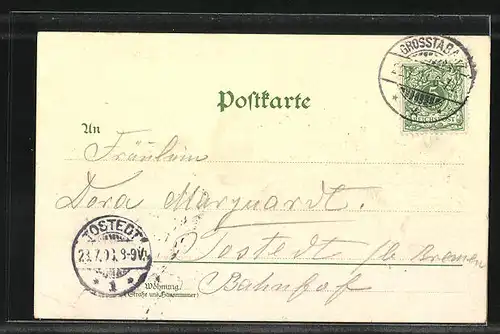 GROSSTABARZ
Postkarte
An
Fräulein
Dora Marquardt.
TOSTEDT
23.7.0 8-9V.
* 1 *
Tostedt b/ Bremen
Bahnhof
Wohnung
(Straße und Hausnummer)